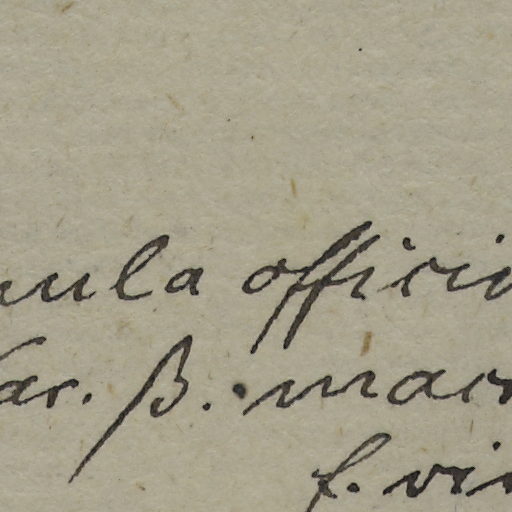 nula offici
Var. β. macr
f. vir